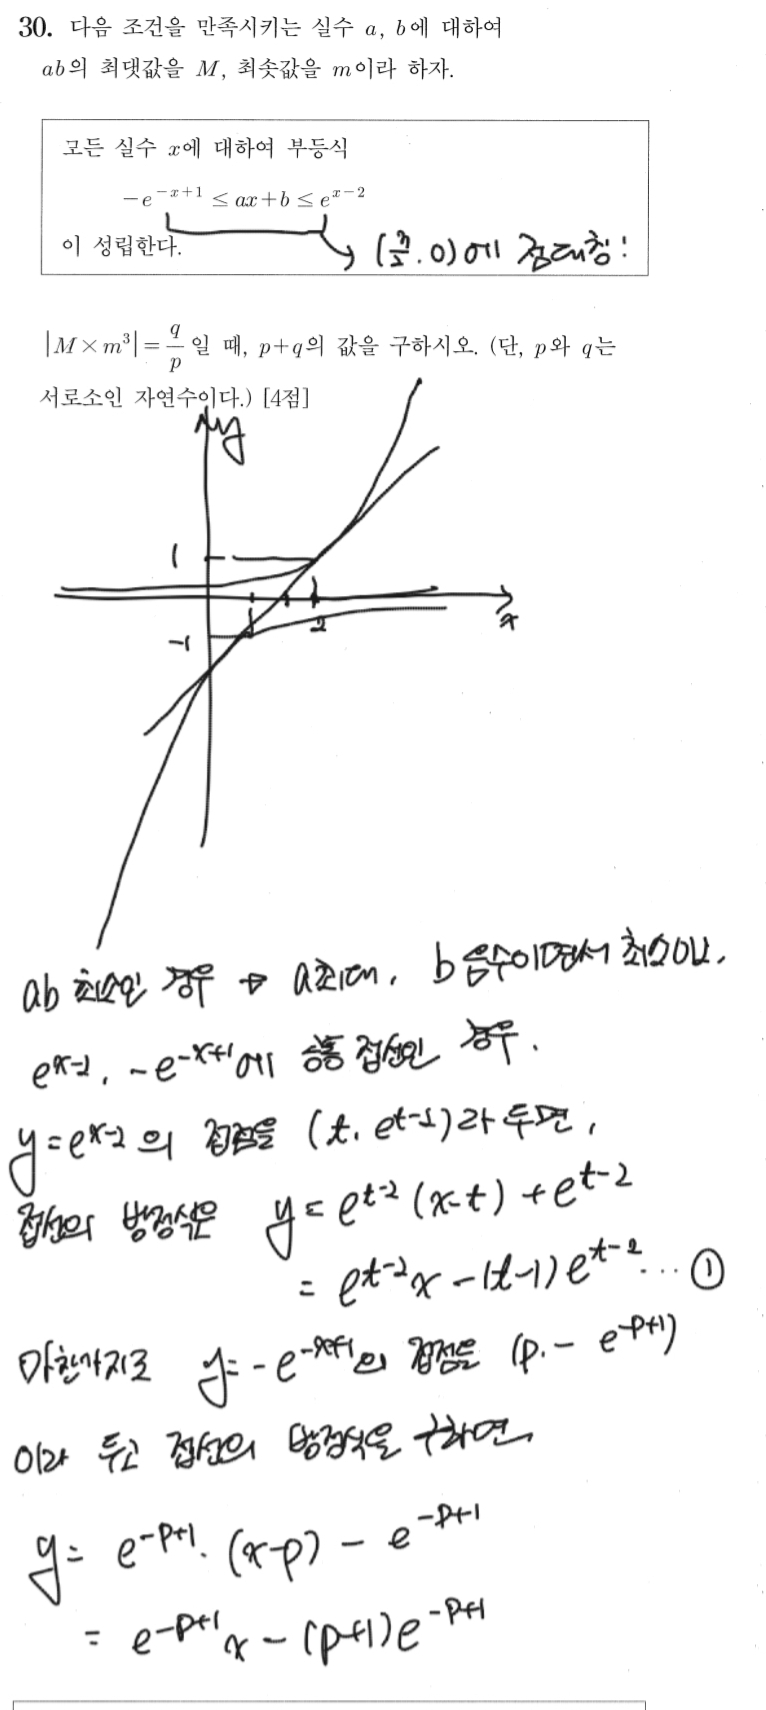 30. 다음 조건을 만족시키는 실수 a, b에 대하여
ab의 최댓값을 M, 최솟값을 m이라 하자.
모든 실수 x에 대하여 부등식
-e^{-x+1} ≤ ax+b ≤ e^{x-2}
이 성립한다.
(3/2, 0)에 점대칭!
|M×m³| = q/p 일 때, p+q의 값을 구하시오. (단, p와 q는
서로소인 자연수이다.) [4점]
y
1
-1
1
2
x
ab 최소인 경우 → a최대, b 음수이면서 최소이고,
e^{x-2}, -e^{-x+1}에 공통접선인 경우.
y=e^{x-2}의 접점을 (t, e^{t-2})라 두면,
접선의 방정식은 y = e^{t-2}(x-t)+e^{t-2}
= e^{t-2}x-(t-1)e^{t-2} ... ①
마찬가지로 y=-e^{-x+1}의 접점을 (p, -e^{-p+1})
이라 두고 접선의 방정식을 구하면,
y= e^{-p+1}·(x-p) - e^{-p+1}
= e^{-p+1}x-(p+1)e^{-p+1}